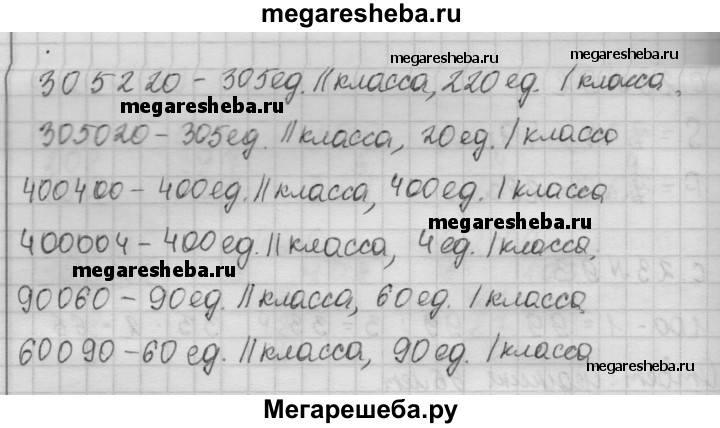 megaresheba.ru
megaresheba.ru
megaresheba.ru
305220 - 305ед. II класса, 220 ед. I класса,
megaresheba.ru
305020 - 305ед. II класса, 20ед. I класса
400400 - 400ед. II класса, 400ед. I класса
megaresheba.ru
400004 - 400ед. II класса, 4ед. I класса,
megaresheba.ru
90060 - 90ед. II класса, 60ед. I класса
60090 - 60 ед. II класса, 90ед. I класса
megaresheba.ru
Мегарешеба.ру